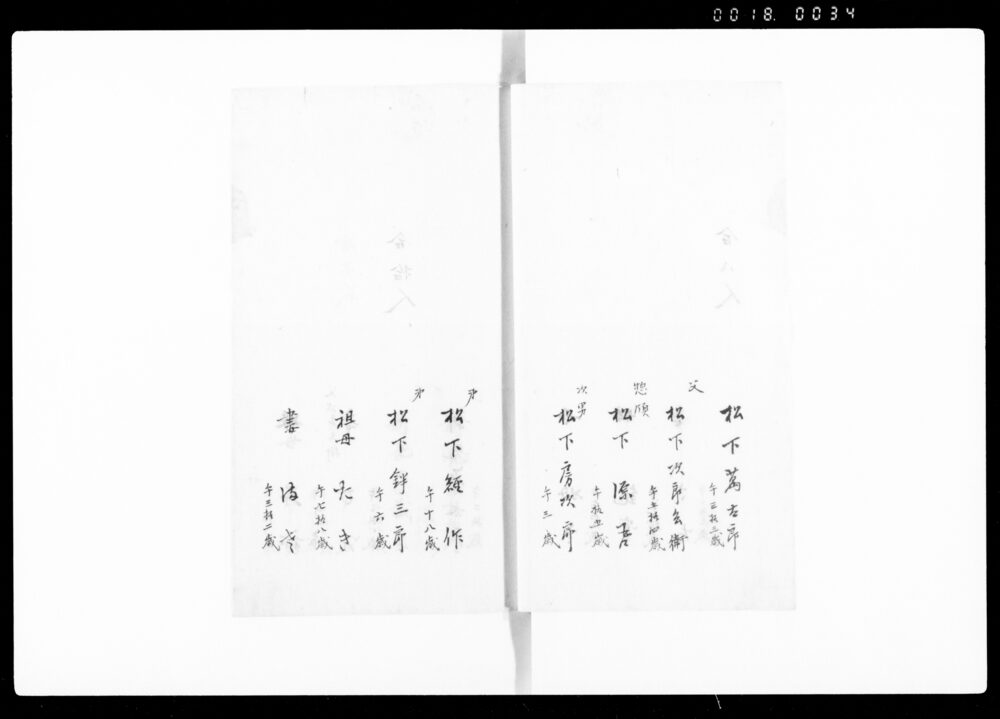 0018. 0034
松下萬右郎
午三拾三歳
父
松下次郎兵衛
午五拾四歳
惣領
松下源吾
午拾五歳
次男
松下房次郎
午三歳
弟
松下經作
午十八歳
弟
松下鉡三郎
午六歳
祖母
たき
午七拾八歳
妻
まさ
午三拾二歳